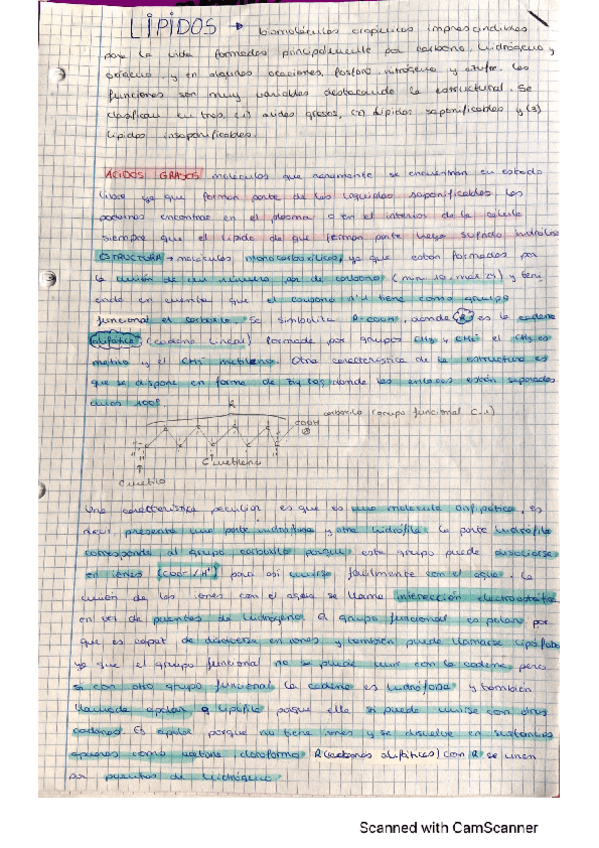 LÍPIDOS → biomoléculas orgánicas imprescindibles
para la vida formados principalmente por carbono, hidrógeno y
oxígeno, y en algunas ocasiones, fosforo, nitrógeno y azufre. Las
funciones son muy variables destacando la estructural. Se
clasifican en tres, (1) acidos grasos, (2) lípidos saponificables y (3)
lípidos insaponificables.
ÁCIDOS GRASOS moléculas que raramente se encuentran en estado
libre ya que forman parte de los saponificables. Los
podemos encontrar en el plasma o en el interior de la célula
siempre que el lípido de que forman parte haya sufrido
ESTRUCTURA → moléculas monocarboxílicas, ya que están formados por
la unión de un número par de carbono (min 10, max) y
endo en cuenta que el carbono nº1 tiene como grupo
funcional el carboxilo. Se simboliza R-COOH, donde R es la cadena
alifática (cadena lineal) formada por grupos CH3 y CH2 el CH3 es
metilo y el metileno. Otra característica de la estructura es
que se dispone en forma de zig zag donde los enlaces están separados
unos
R
COOH
carboxilo (grupo funcional C.1)
C metileno
C metilo
Una característica peculiar es que es una molécula anfipática, es
aquí, presenta una parte hidrófoba y otra hidrófila. La parte hidrófila
corresponde al grupo carboxilo porque este grupo puede disociarse
en iones (COO-/H+) para así unirse fácilmente con el agua. La
unión de los iones con el agua se llama interacción electrostática
en vez de puentes de hidrógeno. El grupo funcional es polar por
que es capaz de disociarse en iones y también puede llamarse lipófobo
ya que el grupo funcional no se puede unir con la cadena pero
si con otro grupo funcional. La cadena es hidrófoba y también
llamada apolar o lipófila porque ella si puede unirse con otras
cadenas. Es apolar porque no tiene iones y se disuelve en sustancias
apolares como acetona cloroformo. R (carbonos alifáticos) con R se unen
por puentes de hidrógeno.
Scanned with CamScanner